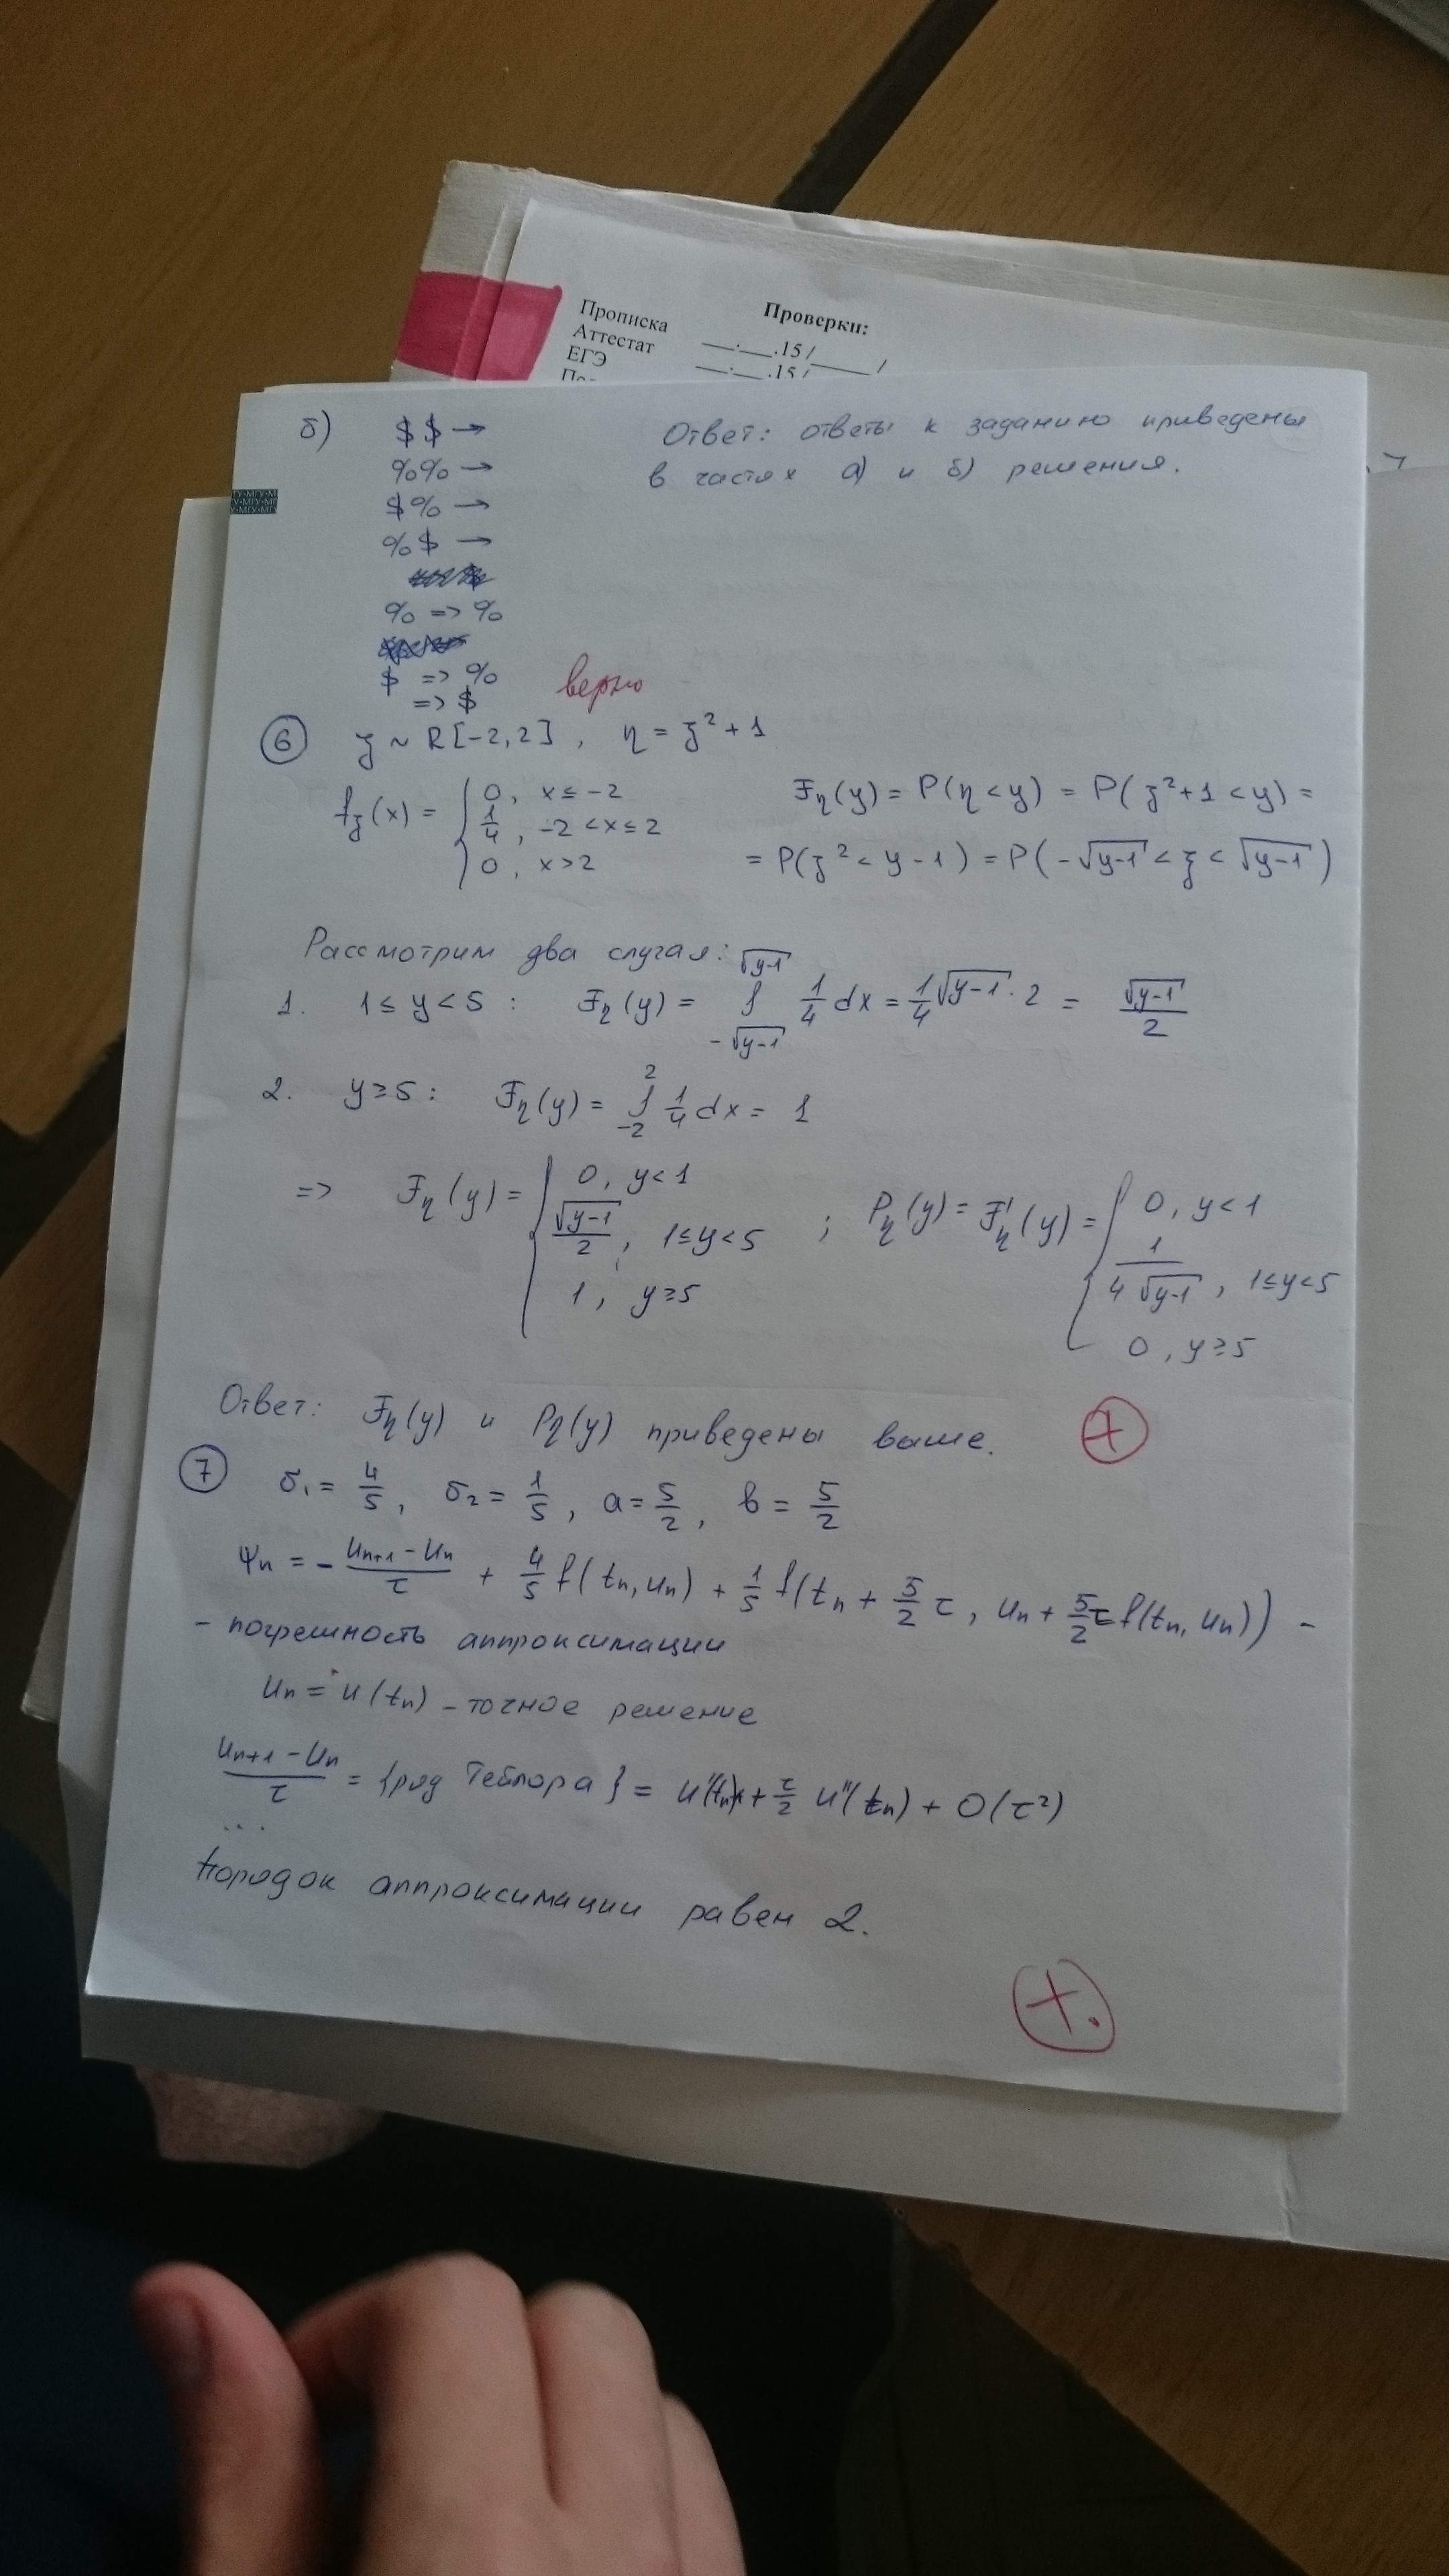 Прописка
Аттестат
ЕГЭ
Проверки:
__.__.15 /______/
__.__.15 /
б)
$$ →
%% →
$% →
%$ →
% => %
$ => %
=> $
Ответ: ответы к заданию приведены
в частях а) и б) решения.
верно
6 ξ ~ R[-2,2], η = ξ² + 1
f_ξ(x) = { 0, x ≤ -2
1/4, -2 < x ≤ 2
0, x > 2
F_η(y) = P(η < y) = P(ξ² + 1 < y) =
= P(ξ² < y - 1) = P(-√(y-1) < ξ < √(y-1))
Рассмотрим два случая:
1. 1 ≤ y < 5 : F_η(y) = ∫_{-√(y-1)}^{√(y-1)} 1/4 dx = 1/4 √(y-1) · 2 = √(y-1)/2
2. y ≥ 5 : F_η(y) = ∫_{-2}^{2} 1/4 dx = 1
=> F_η(y) = { 0, y < 1
√(y-1)/2, 1 ≤ y < 5
1, y ≥ 5
; P_η(y) = F'_η(y) = { 0, y < 1
1/(4√(y-1)), 1 ≤ y < 5
0, y ≥ 5
Ответ: F_η(y) и P_η(y) приведены выше.
+
7 σ₁ = 4/5, σ₂ = 1/5, a = 5/2, b = 5/2
Ψn = - (Un+1 - Un)/τ + 4/5 f(tn, un) + 1/5 f(tn + 5/2 τ, un + 5/2 τ f(tn, un)) -
- погрешность аппроксимации
Un = u(tn) - точное решение
(Un+1 - Un)/τ = {ряд Тейлора} = u'(tn) + τ/2 u''(tn) + O(τ²)
...
Порядок аппроксимации равен 2.
+.